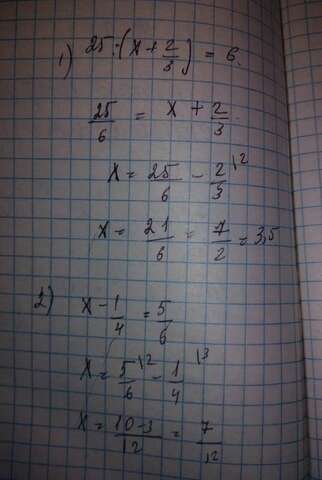 1) 25:(x + 2/3) = 6.
25/6 = x + 2/3.
x = 25/6 - 2/3 \2
x = 21/6 = 7/2 = 3,5
2) x - 1/4 = 5/6
x = 5/6 \2 - 1/4 \3
x = 10-3/12 = 7/12